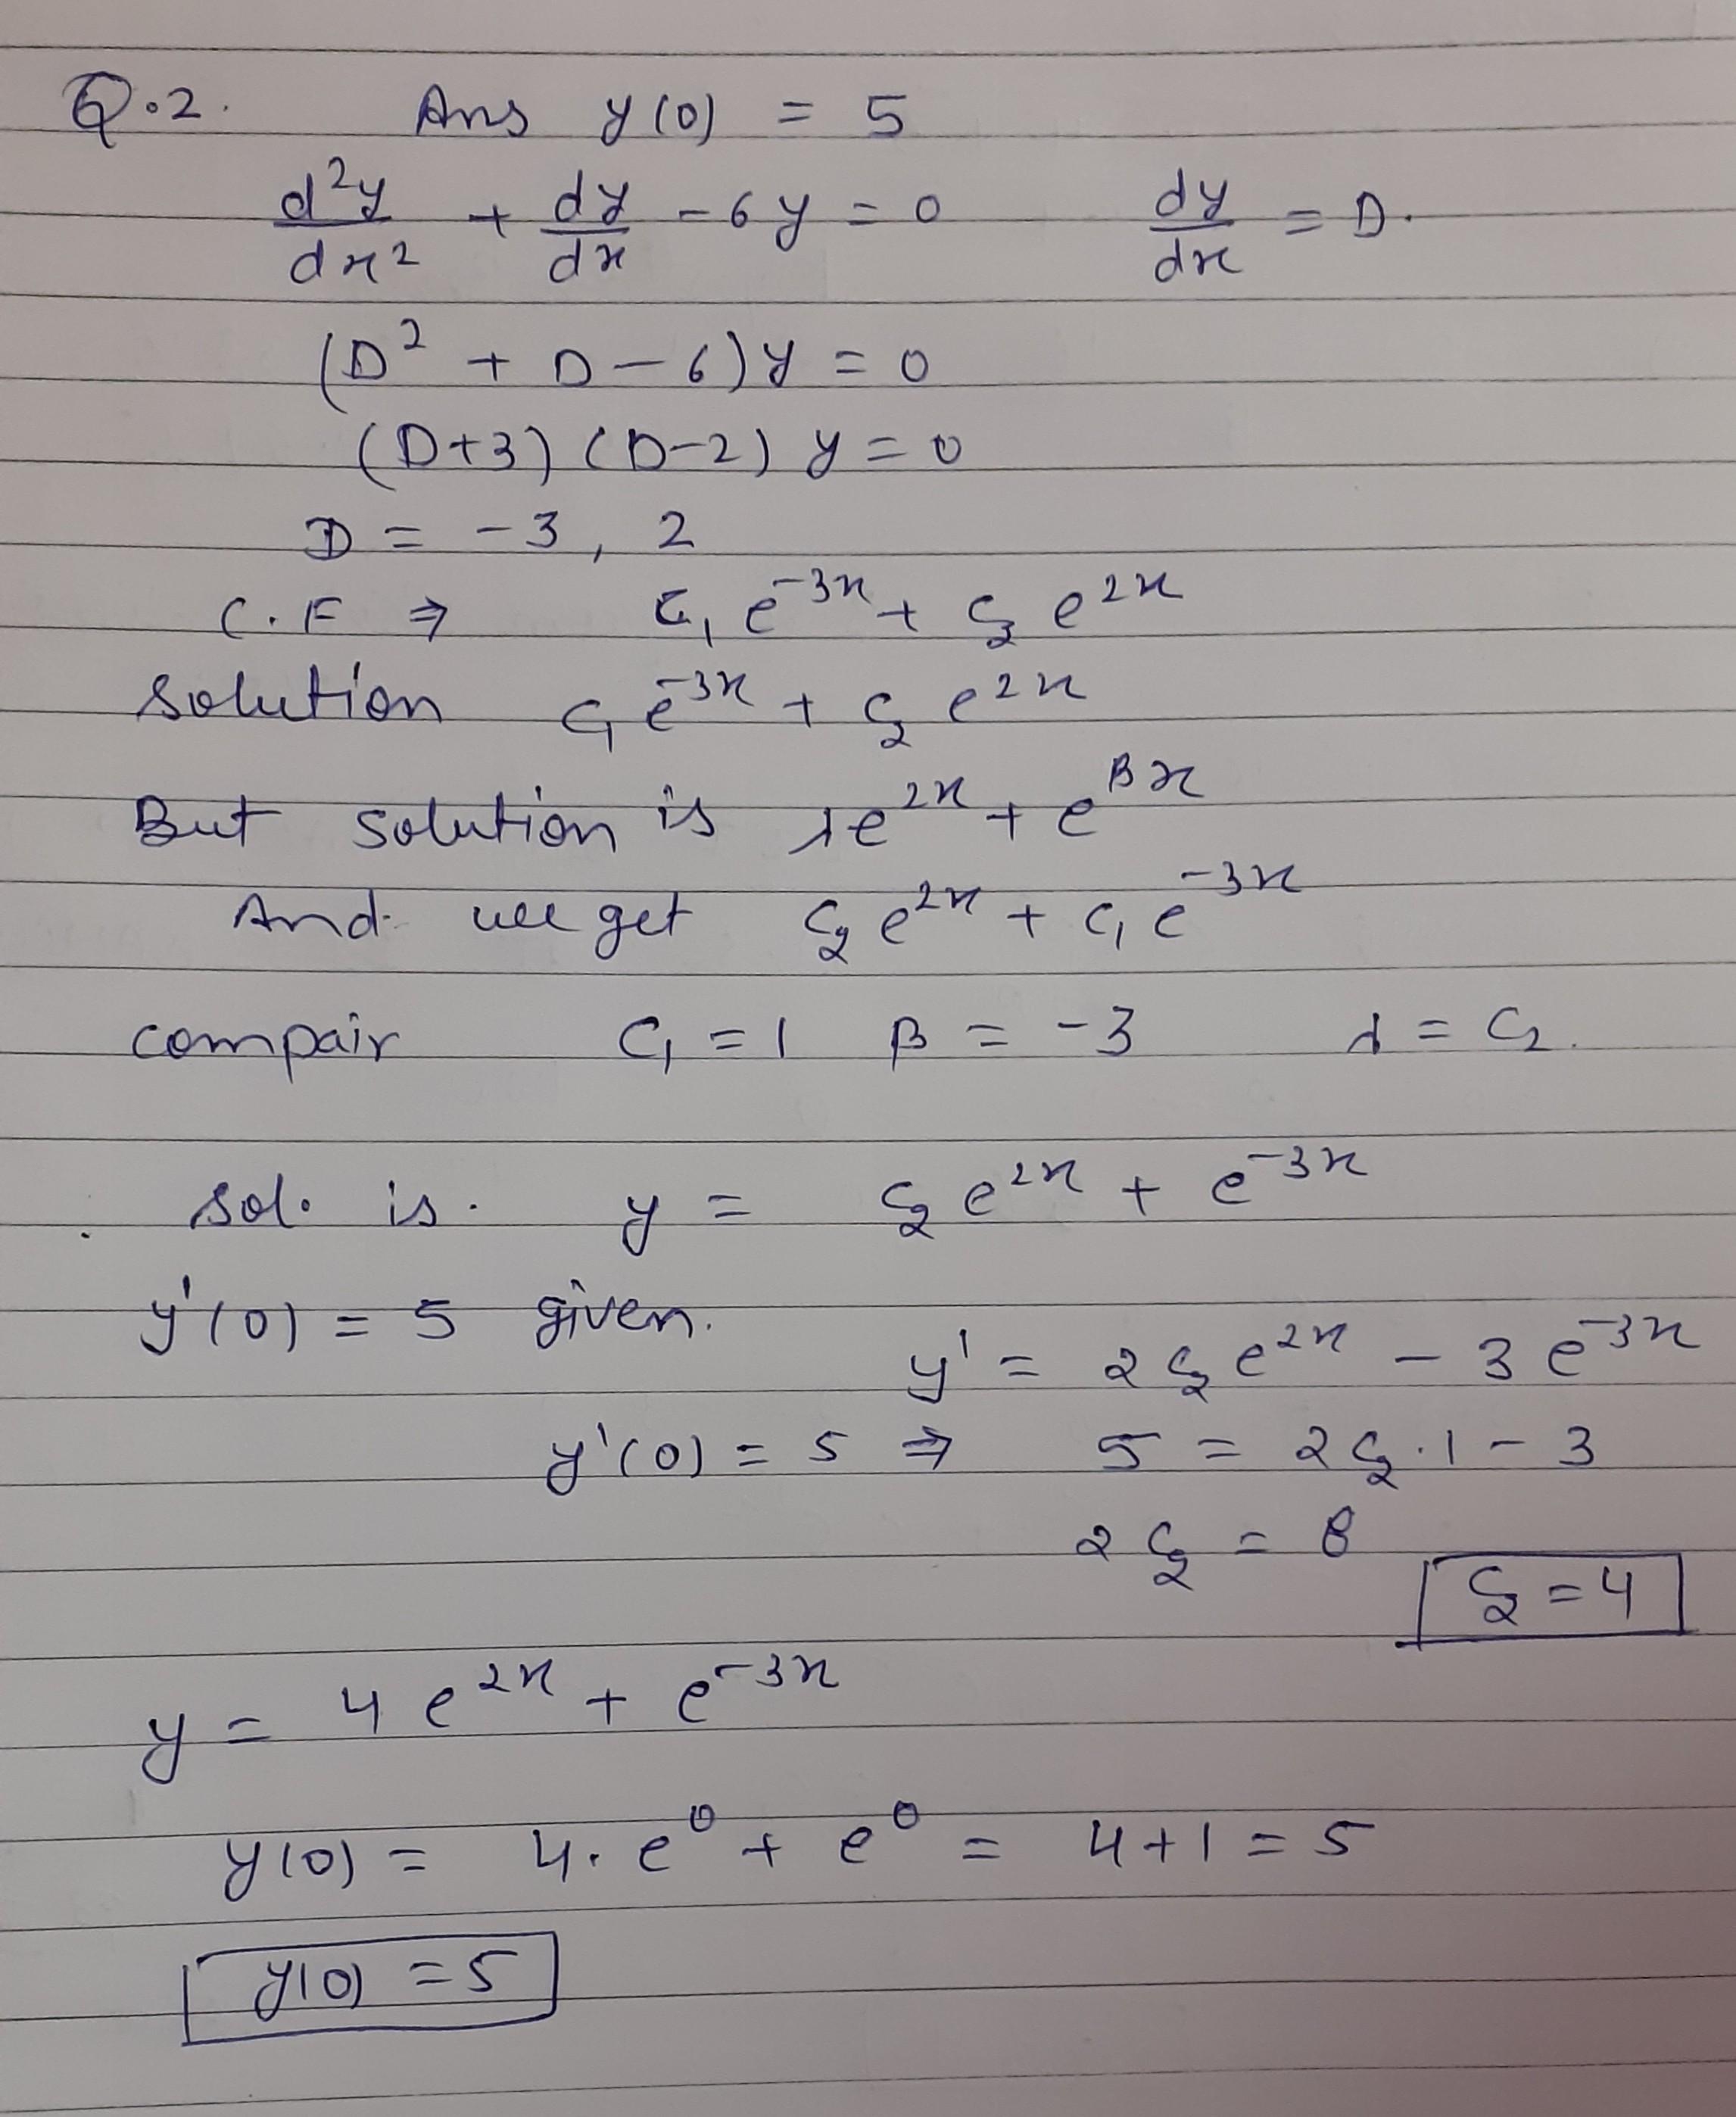 Q.2. Ans y(0) = 5
d²y/dx² + dy/dx - 6y = 0 dy/dx = D.
(D² + D - 6)y = 0
(D+3) (D-2) y = 0
D = -3, 2
C.F ⇒ C₁ e⁻³ˣ + C₂ e²ˣ
solution C₁ e⁻³ˣ + C₂ e²ˣ
But solution is λe²ˣ + e^βx
And we get C₂ e²ˣ + C₁ e⁻³ˣ
compair C₁ = 1 β = -3 λ = C₂.
sol. is. y = C₂ e²ˣ + e⁻³ˣ
y'(0) = 5 given.
y' = 2C₂ e²ˣ - 3 e⁻³ˣ
y'(0) = 5 ⇒ 5 = 2C₂.1 - 3
2C₂ = 8
C₂ = 4
y = 4 e²ˣ + e⁻³ˣ
y(0) = 4. e⁰ + e⁰ = 4+1 = 5
y(0) = 5